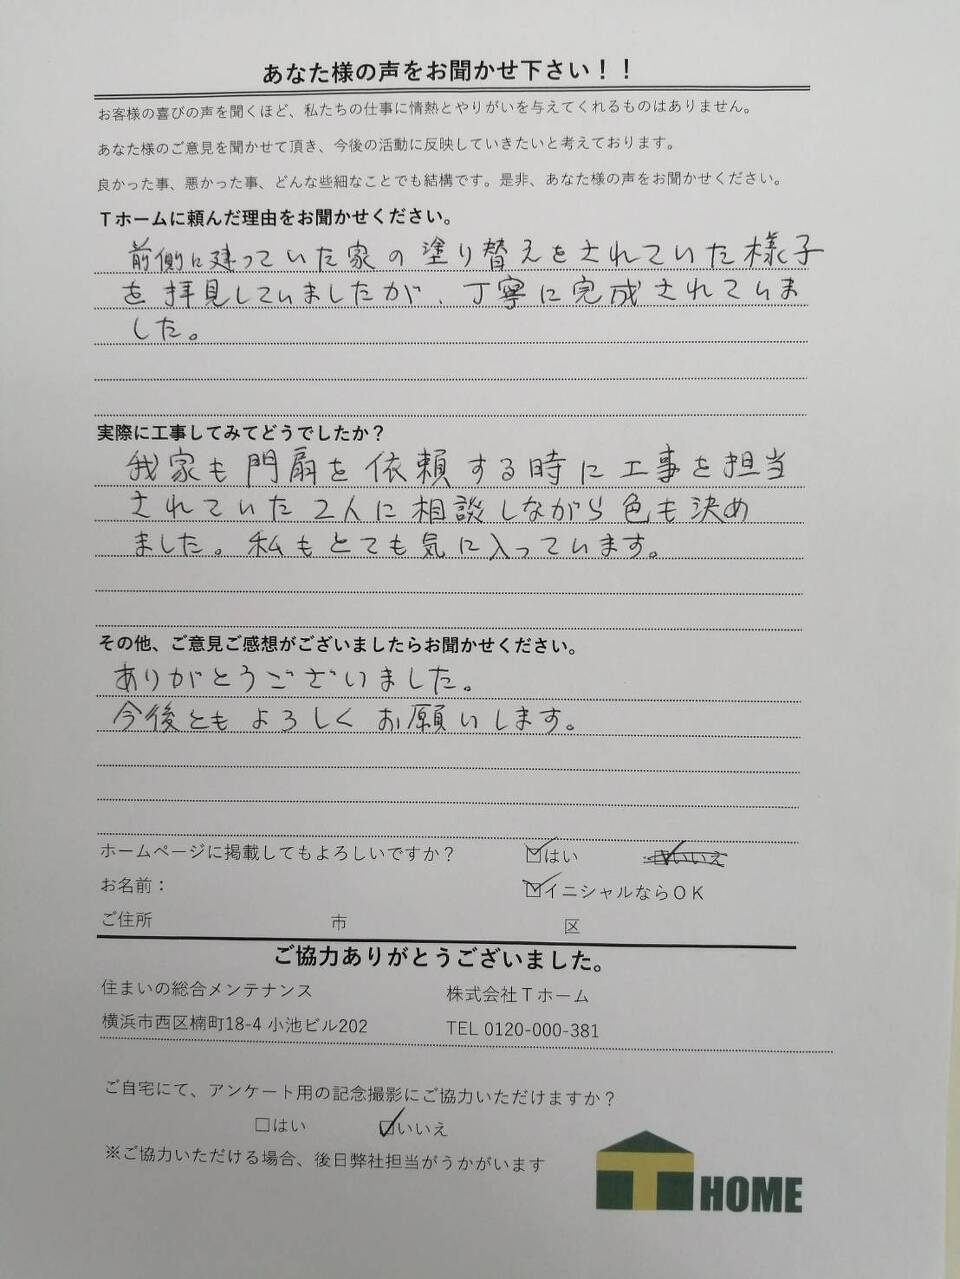 あなた様の声をお聞かせ下さい！！
お客様の喜びの声を聞くほど、私たちの仕事に情熱とやりがいを与えてくれるものはありません。
あなた様のご意見を聞かせて頂き、今後の活動に反映していきたいと考えております。
良かった事、悪かった事、どんな些細なことでも結構です。是非、あなた様の声をお聞かせください。
Ｔホームに頼んだ理由をお聞かせください。
前側に建っていた家の塗り替えをされていた様子
を拝見していましたが、丁寧に完成されていま
した。
実際に工事してみてどうでしたか？
我家も門扉を依頼する時に工事を担当
されていた2人に相談しながら色も決め
ました。私もとても気に入っています。
その他、ご意見ご感想がございましたらお聞かせください。
ありがとうございました。
今後ともよろしくお願いします。
ホームページに掲載してもよろしいですか？ ☑はい ☑いいえ
お名前： ☑イニシャルならＯＫ
ご住所 市 区
ご協力ありがとうございました。
住まいの総合メンテナンス 株式会社Ｔホーム
横浜市西区楠町18-4 小池ビル202 TEL 0120-000-381
ご自宅にて、アンケート用の記念撮影にご協力いただけますか？
□はい ☑いいえ
※ご協力いただける場合、後日弊社担当がうかがいます
T HOME